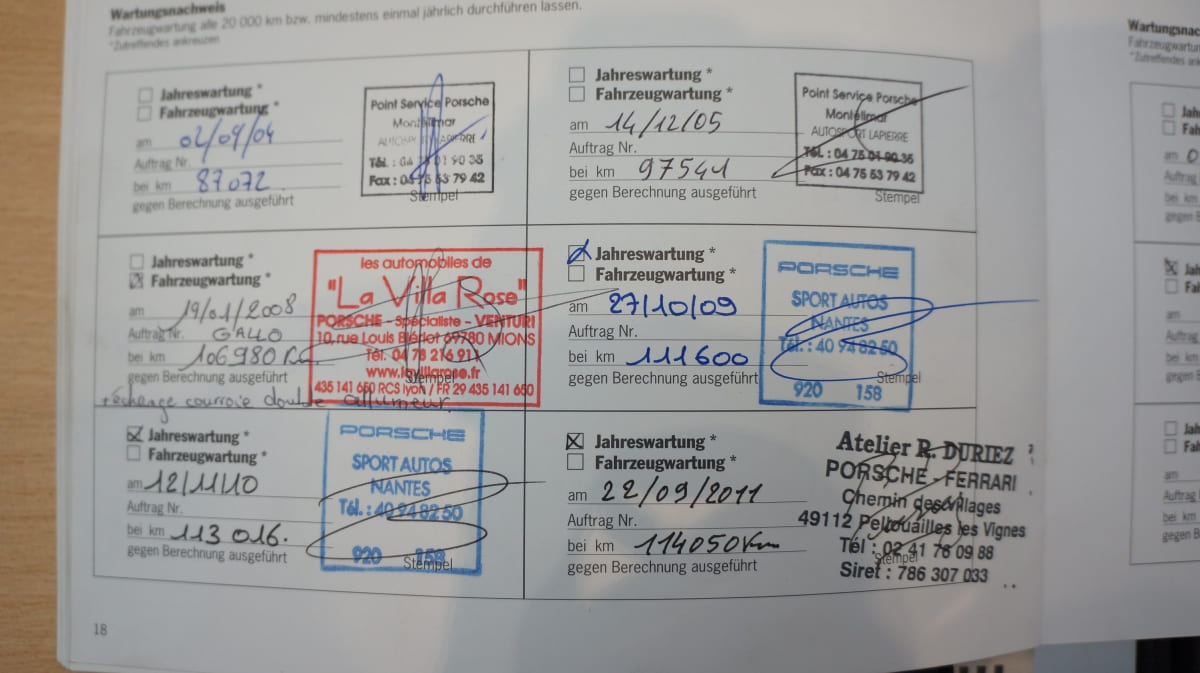 Wartungsnachweis
Fahrzeugwartung alle 20 000 km bzw. mindestens einmal jährlich durchführen lassen.
*Zutreffendes ankreuzen
Jahreswartung *
Fahrzeugwartung *
am 02/09/04
Auftrag Nr.
bei km 87072
gegen Berechnung ausgeführt
Point Service Porsche
Montélimar
Tél. : 04 75 01 90 35
Fax : 04 75 53 79 42
Stempel
Jahreswartung *
Fahrzeugwartung *
am 14/12/05
Auftrag Nr.
bei km 97541
gegen Berechnung ausgeführt
Point Service Porsche
Montélimar
AUTOSPORT LAPIERRE
Tél. : 04 75 01 90 35
Fax : 04 75 53 79 42
Stempel
Jahreswartung *
Fahrzeugwartung *
am 19/01/2008
Auftrag Nr. GALLO
bei km 106980 Km
gegen Berechnung ausgeführt
+ échange courroie double allumeur.
les automobiles de
"La Villa Rose"
PORSCHE - Spécialiste - VENTURI
10, rue Louis Blériot 69780 MIONS
Tél. 04 78 216 911
www.lavillarose.fr
Stempel
435 141 650 RCS lyon / FR 29 435 141 650
Jahreswartung *
Fahrzeugwartung *
am 27/10/09
Auftrag Nr.
bei km 111600
gegen Berechnung ausgeführt
PORSCHE
SPORT AUTOS
NANTES
Tél. : 40 94 82 50
Stempel
920 158
Jahreswartung *
Fahrzeugwartung *
am 12/11/10
Auftrag Nr.
bei km 113 016.
gegen Berechnung ausgeführt
PORSCHE
SPORT AUTOS
NANTES
Tél. : 40 94 82 50
920 158
Stempel
Jahreswartung *
Fahrzeugwartung *
am 22/09/2011
Auftrag Nr.
bei km 114050 Km
gegen Berechnung ausgeführt
Atelier R. DURIEZ
PORSCHE - FERRARI
Chemin des Villages
49112 Pellouailles les Vignes
Tél : 02 41 76 09 88
Stempel
Siret : 786 307 033
18